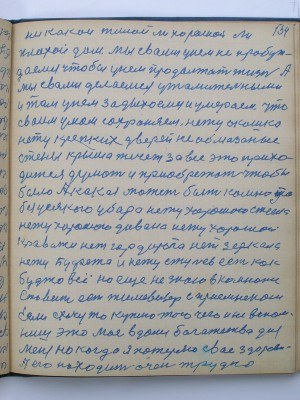 134
ни какой тишой ли хорошой ли
плохой дом мы своим унем не пробуж
даем чтобы унем продолжат жизн А
мы своим делаемся утомителными
и там унем задыхаемся и умераем что
своим унем сохраняем, нету окошко
нету крепких дверей не обмазоные
стены крыша течет за все это прихо
дится думат и приобретат чтобы
было А какая может быт комната
без усякого убора нету хорошого стола
нету хорошого дивана нету хорошой
кравати нет гардероба нет зеркала
нету буфета и нету стулев ест как
будто всё но еще не знаю в комнати
ставит ест телевизор с приемником
Если
мне это мое в доми богатства для
меня но когда я потеряю свое здоров
его находит очен трудно